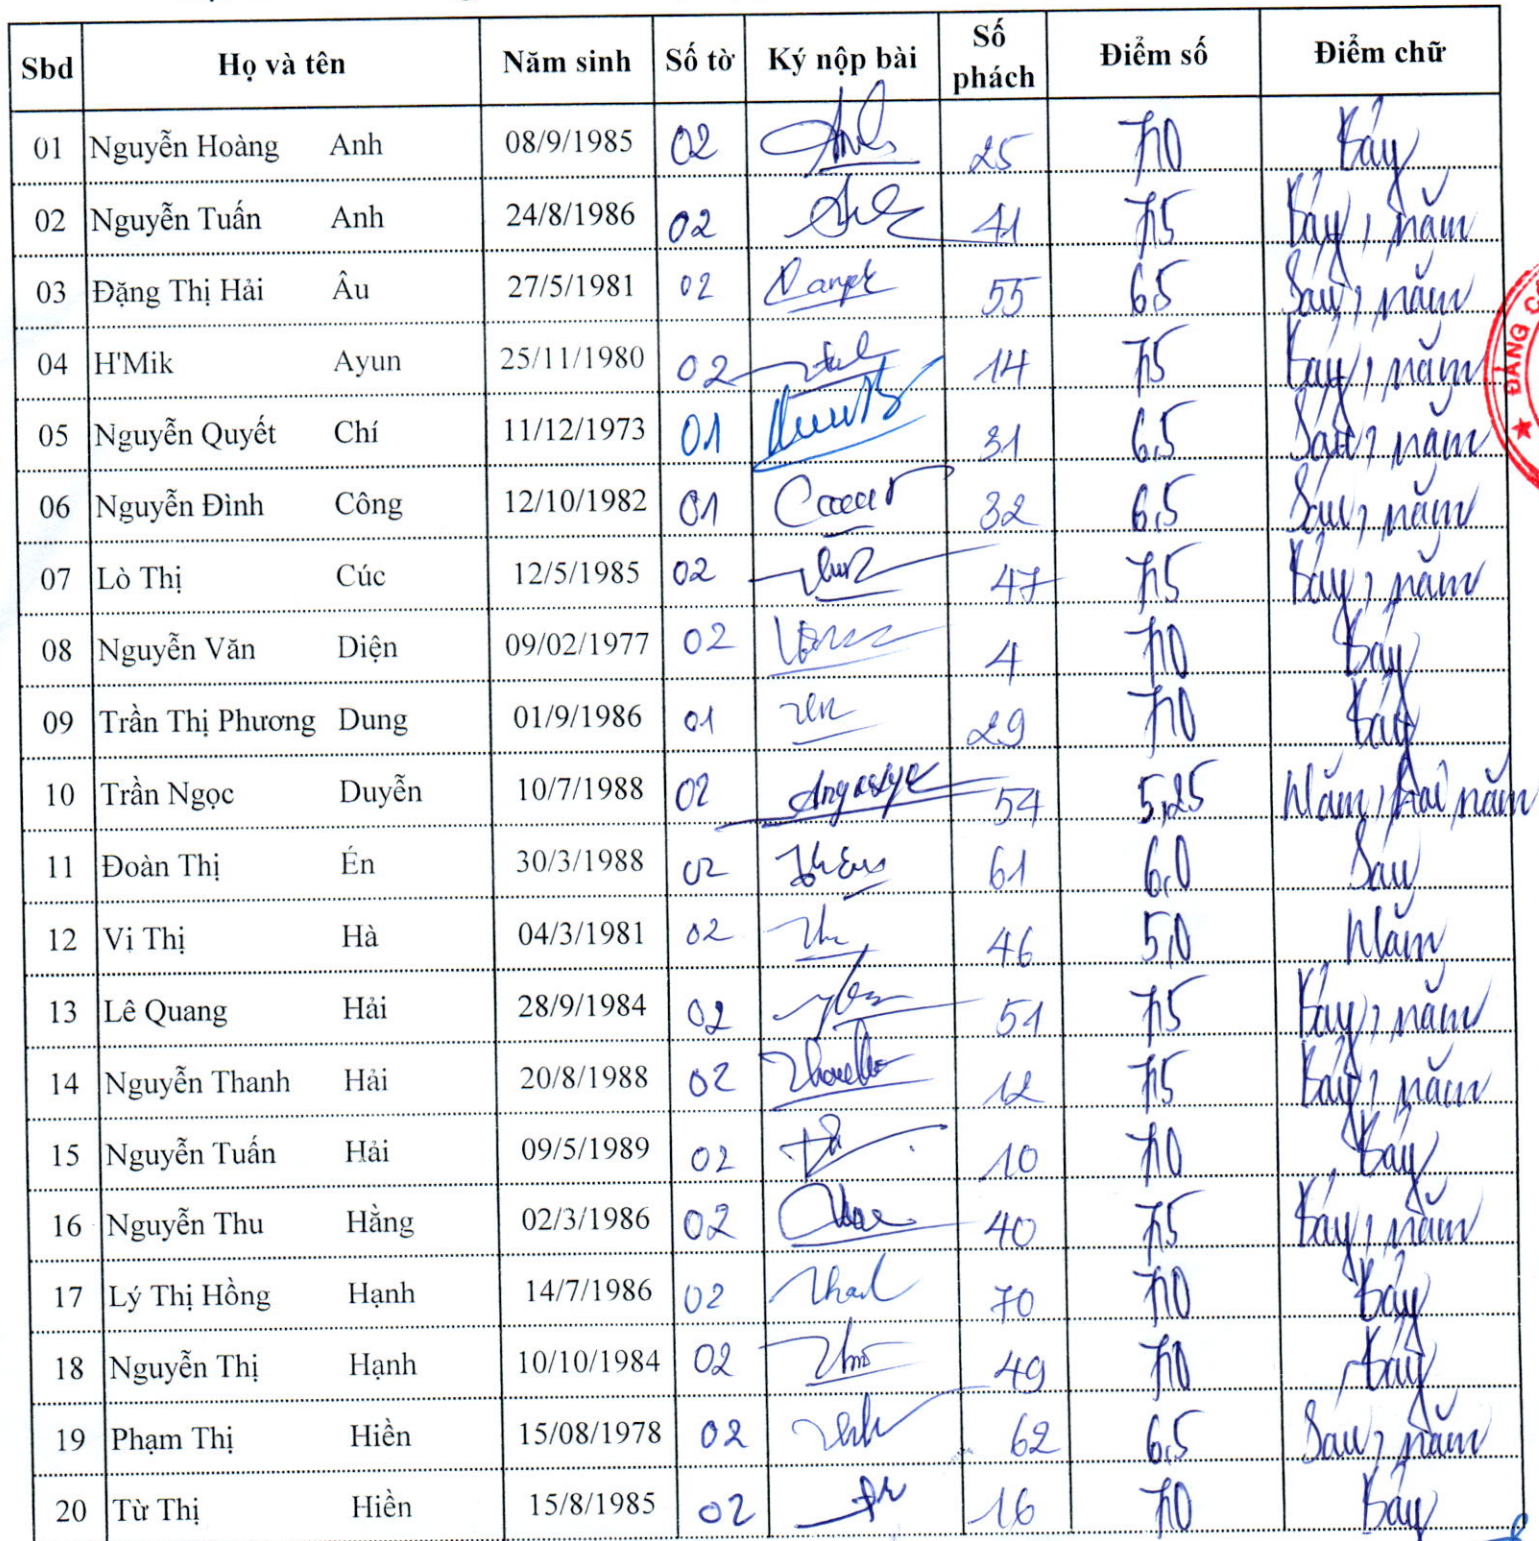 Sbd Họ và tên Năm sinh Số tờ Ký nộp bài Số phách Điểm số Điểm chữ
01 Nguyễn Hoàng Anh 08/9/1985 02 25 7,0 Bảy
02 Nguyễn Tuấn Anh 24/8/1986 02 41 7,5 Bảy, năm
03 Đặng Thị Hải Âu 27/5/1981 02 55 6,5 Sáu, năm
04 H'Mik Ayun 25/11/1980 02 14 7,5 Bảy, năm
05 Nguyễn Quyết Chí 11/12/1973 01 31 6,5 Sáu, năm
06 Nguyễn Đình Công 12/10/1982 01 32 6,5 Sáu, năm
07 Lò Thị Cúc 12/5/1985 02 47 7,5 Bảy, năm
08 Nguyễn Văn Diện 09/02/1977 02 4 7,0 Bảy
09 Trần Thị Phương Dung 01/9/1986 01 29 7,0 Bảy
10 Trần Ngọc Duyễn 10/7/1988 02 54 5,25 Năm, hai năm
11 Đoàn Thị Én 30/3/1988 02 61 6,0 Sáu
12 Vi Thị Hà 04/3/1981 02 46 5,0 Năm
13 Lê Quang Hải 28/9/1984 02 51 7,5 Bảy, năm
14 Nguyễn Thanh Hải 20/8/1988 02 12 7,5 Bảy, năm
15 Nguyễn Tuấn Hải 09/5/1989 02 10 7,0 Bảy
16 Nguyễn Thu Hằng 02/3/1986 02 40 7,5 Bảy, năm
17 Lý Thị Hồng Hạnh 14/7/1986 02 70 7,0 Bảy
18 Nguyễn Thị Hạnh 10/10/1984 02 49 7,0 Bảy
19 Phạm Thị Hiền 15/08/1978 02 62 6,5 Sáu, năm
20 Từ Thị Hiền 15/8/1985 02 16 7,0 Bảy
ĐẢNG